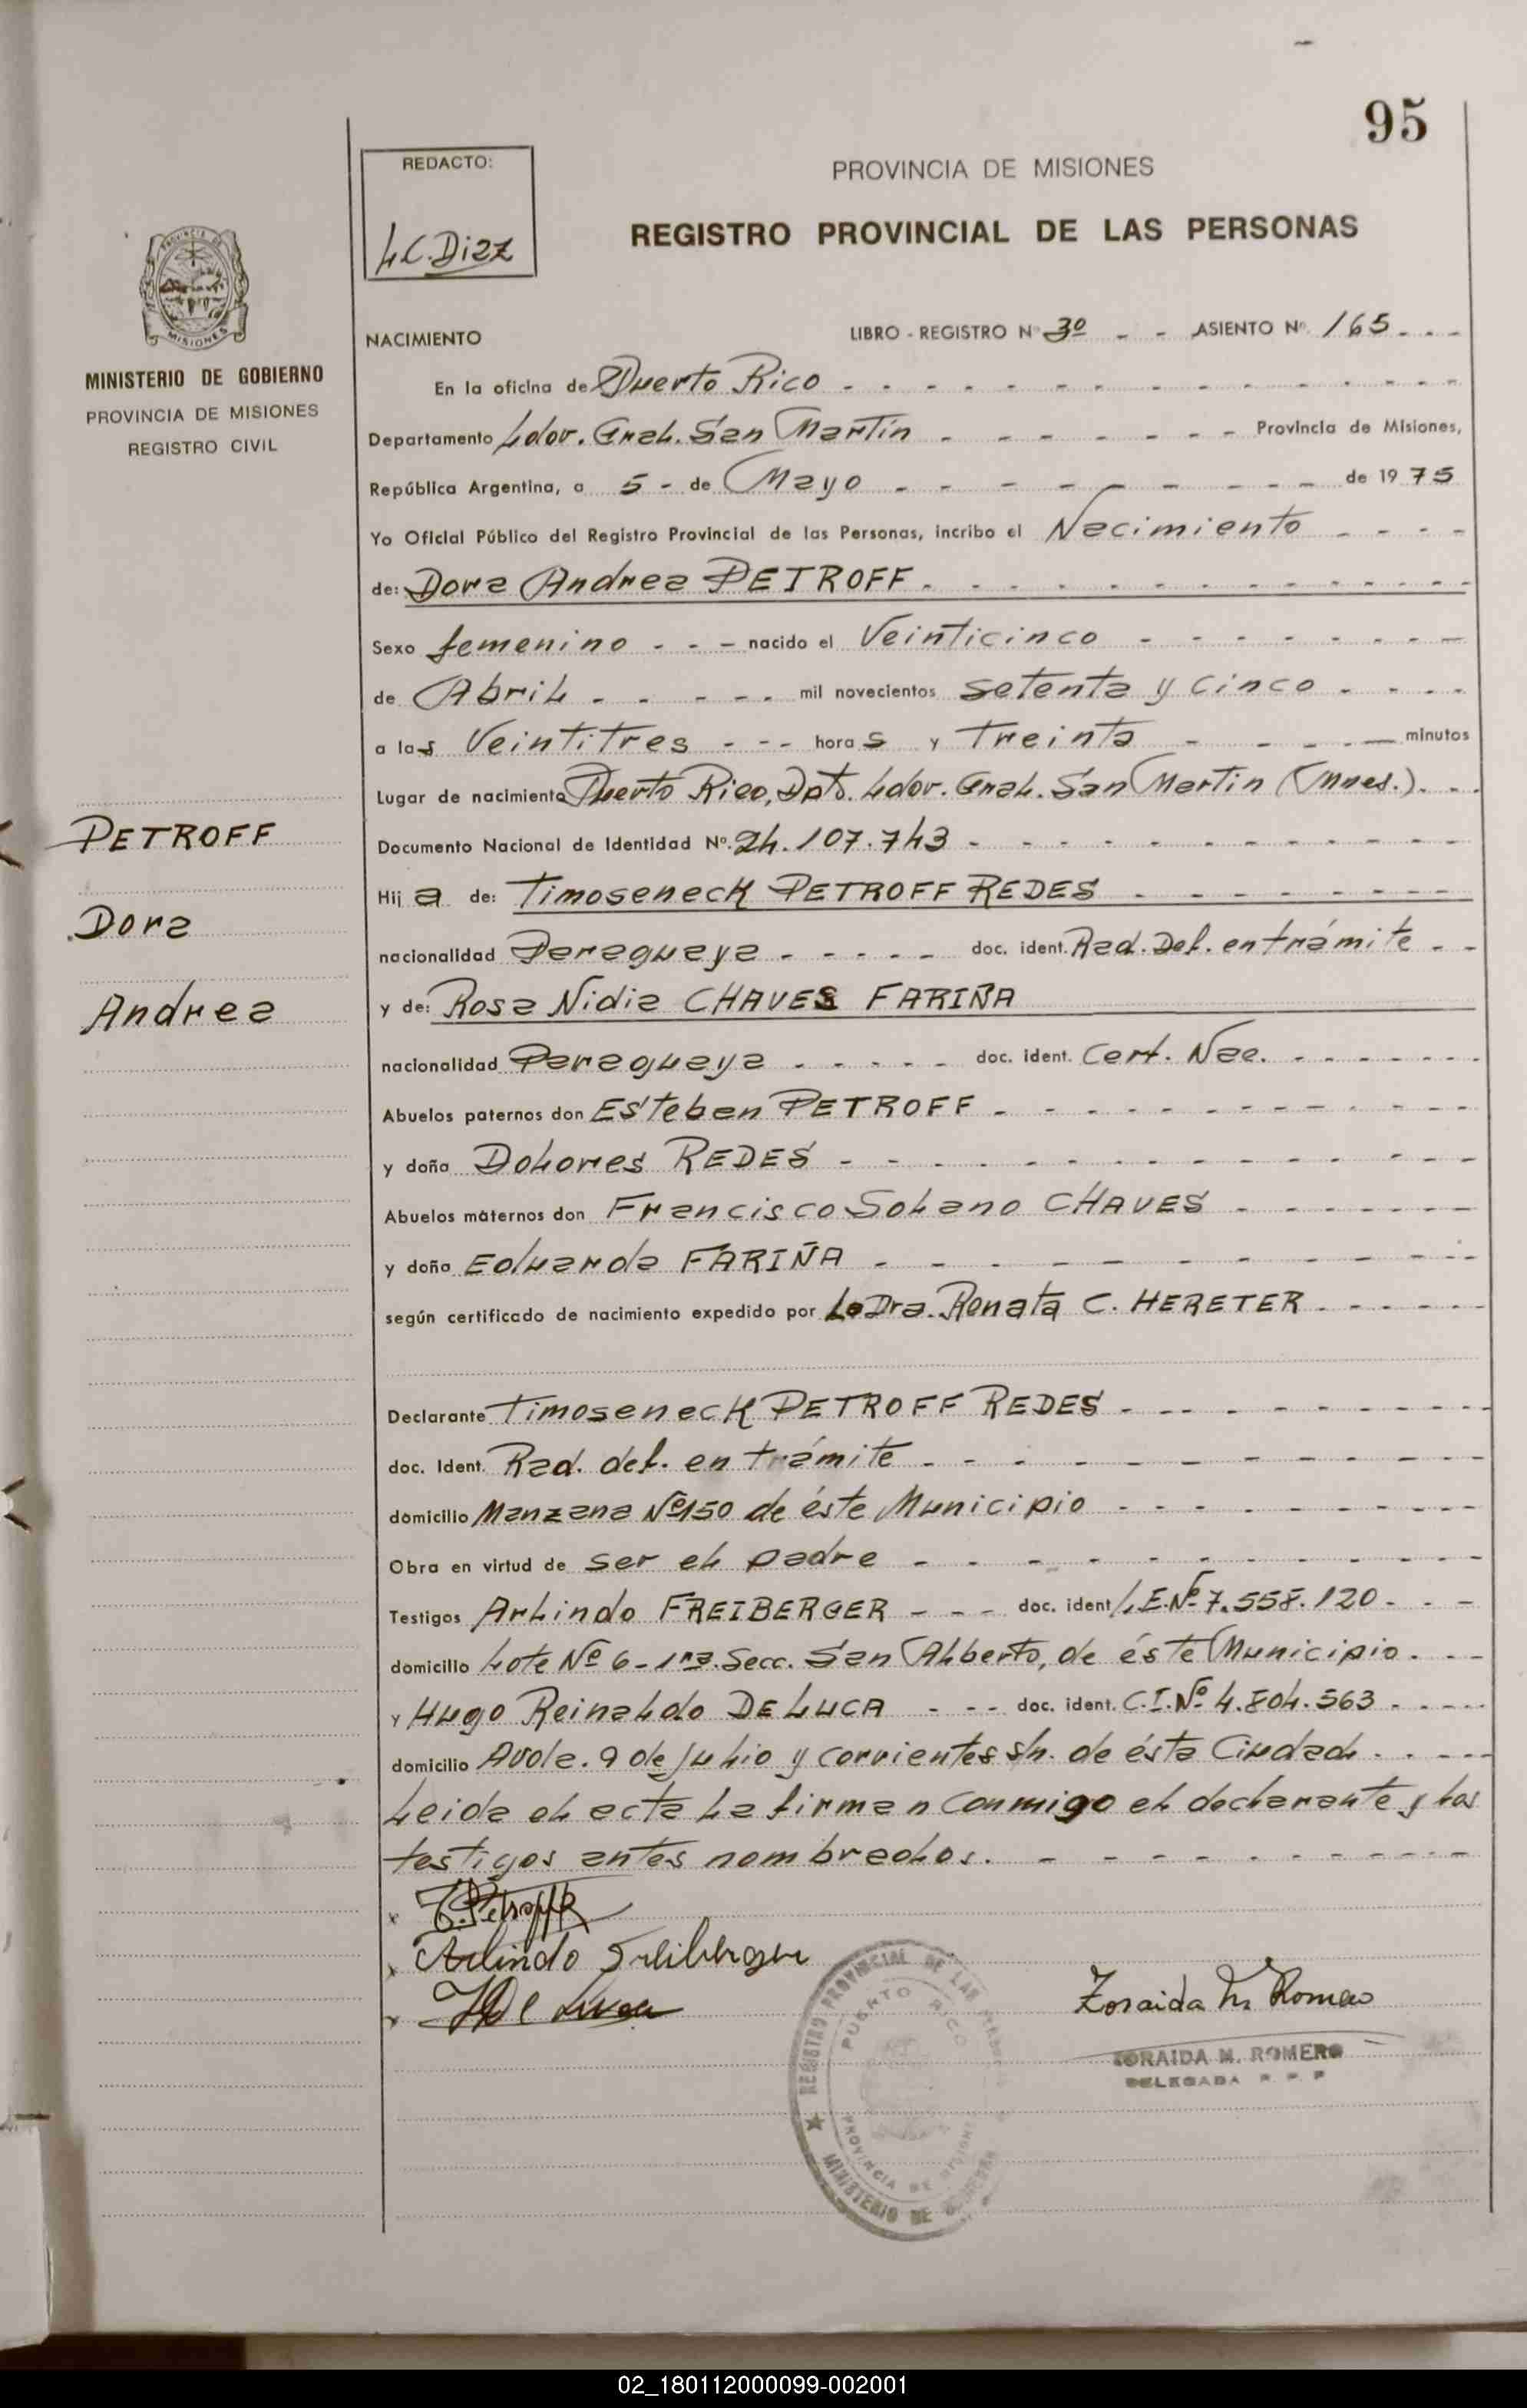 95
REDACTO:
L.C. Diaz
PROVINCIA DE MISIONES
REGISTRO PROVINCIAL DE LAS PERSONAS
MINISTERIO DE GOBIERNO
PROVINCIA DE MISIONES
REGISTRO CIVIL
NACIMIENTO LIBRO - REGISTRO Nº 3º - - ASIENTO Nº 165 - - -
En la oficina de Puerto Rico
Departamento Ldor. Gral. San Martín - - - Provincia de Misiones,
República Argentina, a 5 - de Mayo - - - de 1975
Yo Oficial Público del Registro Provincial de las Personas, incribo el Nacimiento
de: Dora Andrea PETROFF
Sexo femenino - - - nacido el Veinticinco
de Abril - - - mil novecientos setenta y cinco
a las Veintitres - - - horas y Treinta - - - minutos
Lugar de nacimiento Puerto Rico, Dpto. Ldor. Gral. San Martin (Mnes.).
Documento Nacional de Identidad Nº. 24.107.743
Hija de: Timoseneck PETROFF REDES
nacionalidad Paraguaya - - - doc. ident. Rad. Def. en trámite - -
y de: Rosa Nidia CHAVES FARIÑA
nacionalidad Paraguaya - - - doc. ident. Cert. Nac.
Abuelos paternos don Esteban PETROFF
y doña Dolores REDES
Abuelos maternos don Francisco Solano CHAVES
y doña Eduarda FARIÑA
según certificado de nacimiento expedido por La Dra. Renata C. HERETER
Declarante Timoseneck PETROFF REDES
doc. Ident. Rad. def. en trámite
domicilio Manzana Nº 150 de éste Municipio
Obra en virtud de ser el padre
Testigos Arlindo FREIBERGER - - - doc. ident L.E.Nº 7.558.120
domicilio Lote Nº 6 - 1ra. Secc. San Alberto, de éste Municipio
y Hugo Reinaldo DE LUCA - - - doc. ident. C.I.Nº 4.804.563
domicilio Avda. 9 de Julio y corrientes s/n. de ésta Ciudad
Leida el acta la firman conmigo el declarante y los
testigos antes nombrados.
PETROFF
Dora
Andrea
x T. Petroff R
x Arlindo Freiberger
x H De Luca
Zoraida M. Romero
ZORAIDA M. ROMERO
DELEGADA R. P. P
REGISTRO PROVINCIAL DE LAS PERSONAS
PUERTO RICO
PROVINCIA DE MISIONES
MINISTERIO DE GOBIERNO
02_180112000099-002001